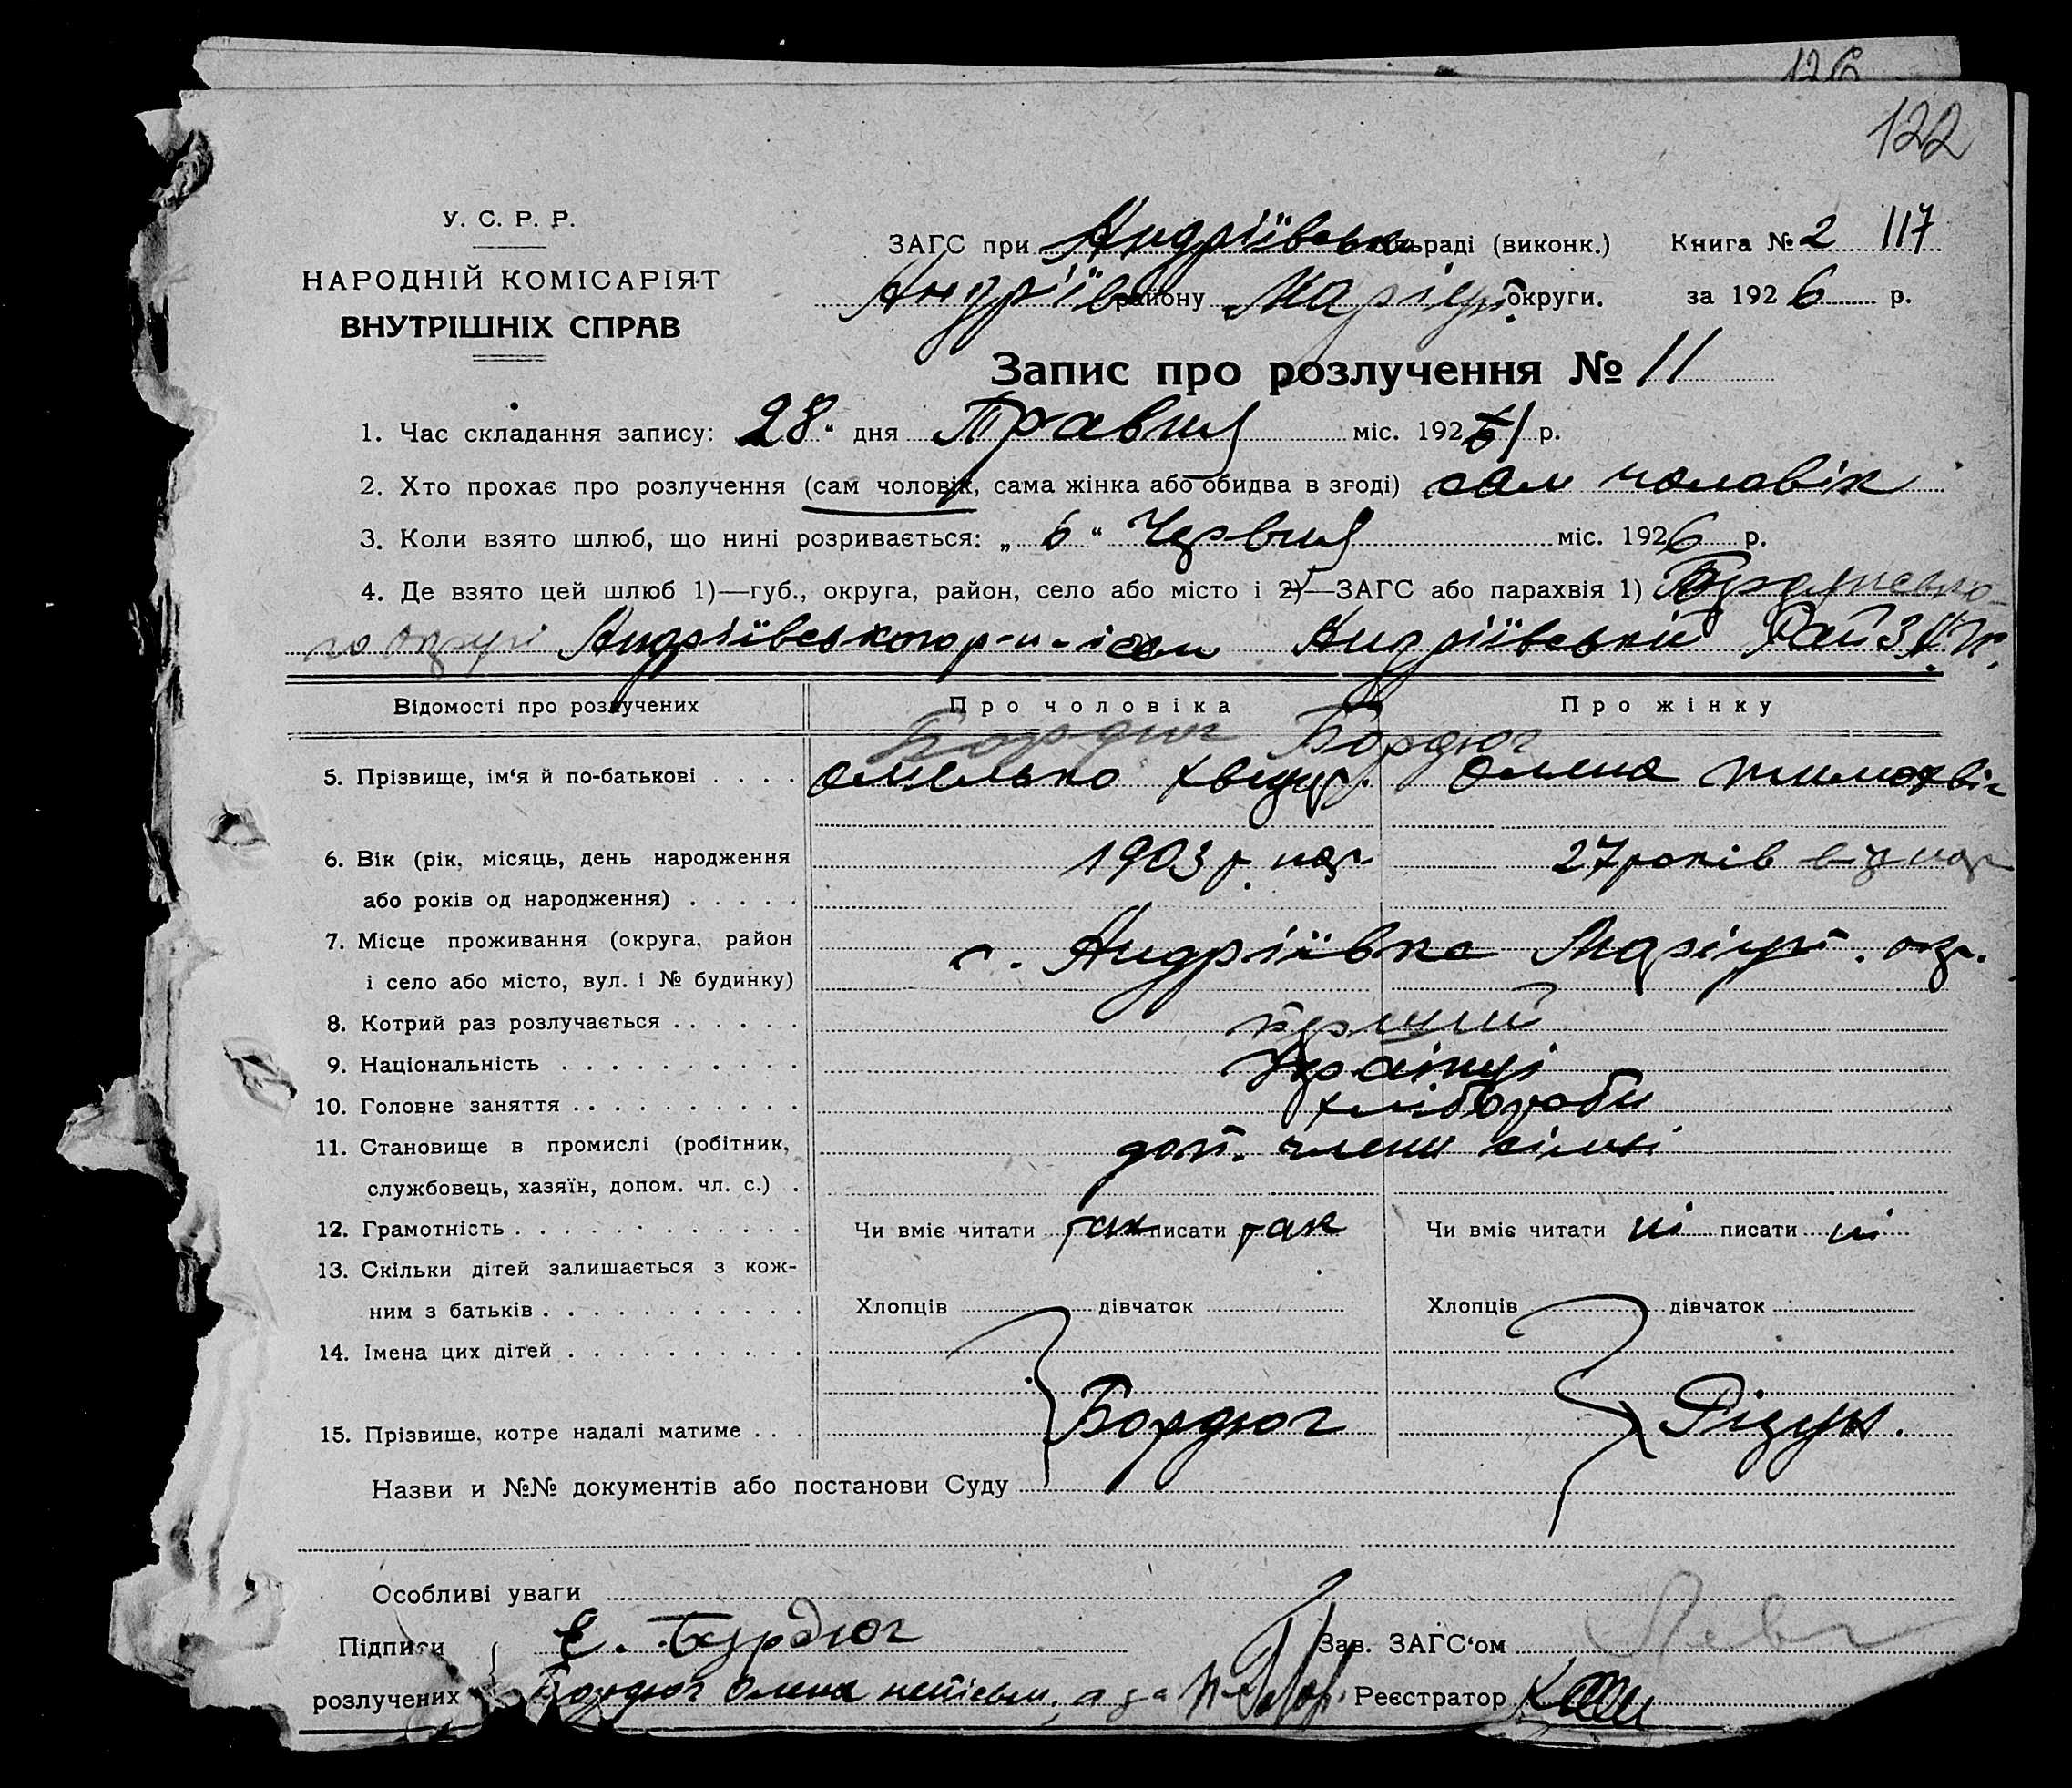 126
122
У. С. Р. Р.
НАРОДНІЙ КОМІСАРІЯТ
ВНУТРІШНІХ СПРАВ
ЗАГС при Андріївськ раді (виконк.) Книга № 2 117
Андріїв району Маріуп. округи. за 1926 р.
Запис про розлучення № 11
1. Час складання запису: 28 " дня Травня міс. 192 р.
2. Хто прохає про розлучення (сам чоловік, сама жінка або обидва в згоді) сам чоловік
3. Коли взято шлюб, що нині розривається: „ 6 " Червня міс. 1926 р.
4. Де взято цей шлюб 1)—губ., округа, район, село або місто і 2)—ЗАГС або парахвія 1)
го округі Андріївського р-н-і Андріївській
Відомості про розлучених Про чоловіка Про жінку
Бордюг Бордюг
5. Прізвище, ім'я й по-батькові . . . . Омелько Хведор. Олена Тимохвів
6. Вік (рік, місяць, день народження 1903 р. нар. 27 років від нар
або років од народження) . . . . .
7. Місце проживання (округа, район с. Андріївка Маріуп. окр.
і село або місто, вул. і № будинку)
8. Котрий раз розлучається . . . . . . перший
9. Національність . . . . . . . . . . Українці
10. Головне заняття . . . . . . . . . . хлібороби
11. Становище в промислі (робітник, доп. члени сімьі
службовець, хазяїн, допом. чл. с.) .
12. Грамотність . . . . . . . . . . . . Чи вміє читати так писати так Чи вміє читати ні писати ні
13. Скільки дітей залишається з кож-
ним з батьків . . . . . . . . . . . Хлопців дівчаток Хлопців дівчаток
14. Імена цих дітей . . . . . . . . . .
15. Прізвище, котре надалі матиме . . . Бордюг Різун.
Назви и №№ документів або постанови Суду
Особливі уваги
Підписи Е. Бурдюг Зав. ЗАГС'ом
розлучених Бордюг Олена неписьм. а за Реєстратор